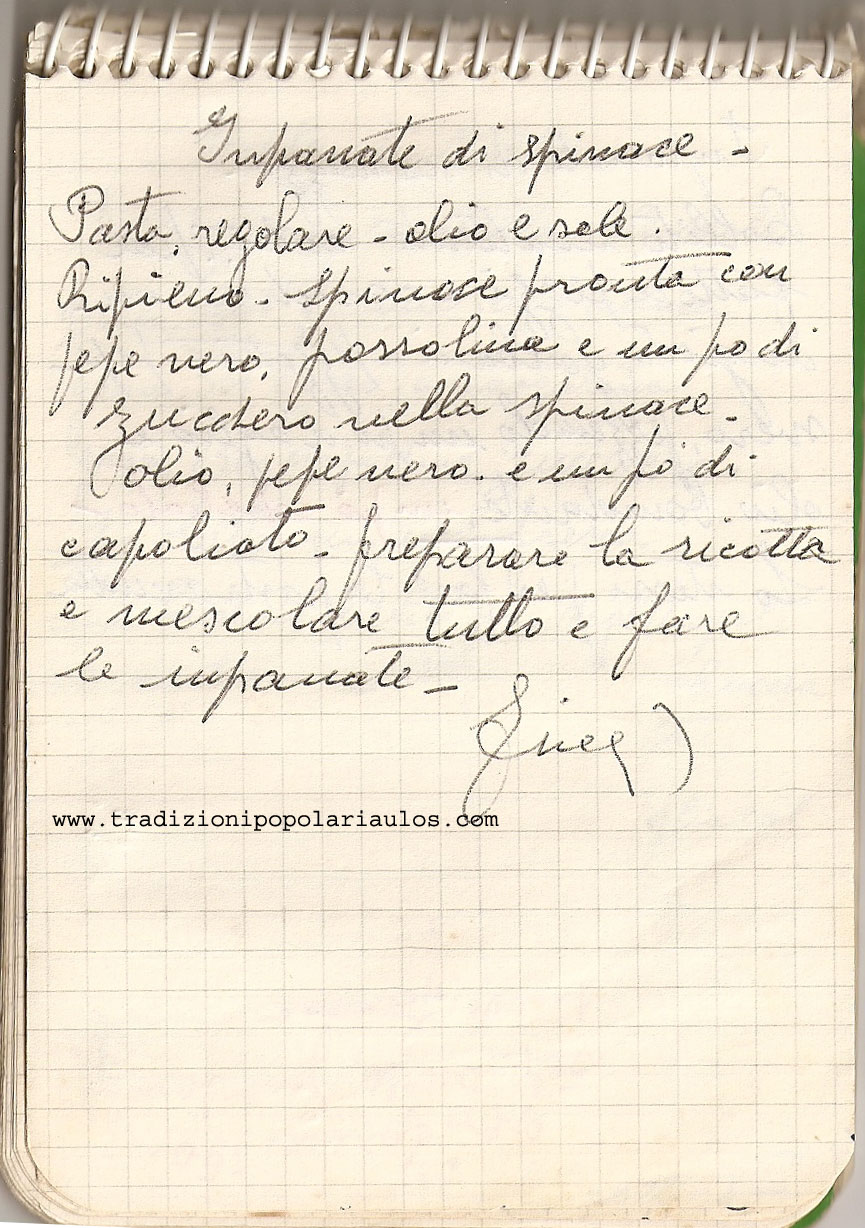 Inpanate di spinace -
Pasta, regolare - olio e sale.
Ripieno - Spinace pronta con
pepe nero, passolina e un po di
zucchero nella spinace -
olio, pepe nero. e un pò di
capoliato - preparare la ricotta
e mescolare tutto e fare
le inpanate -
www.tradizionipopolariaulos.com